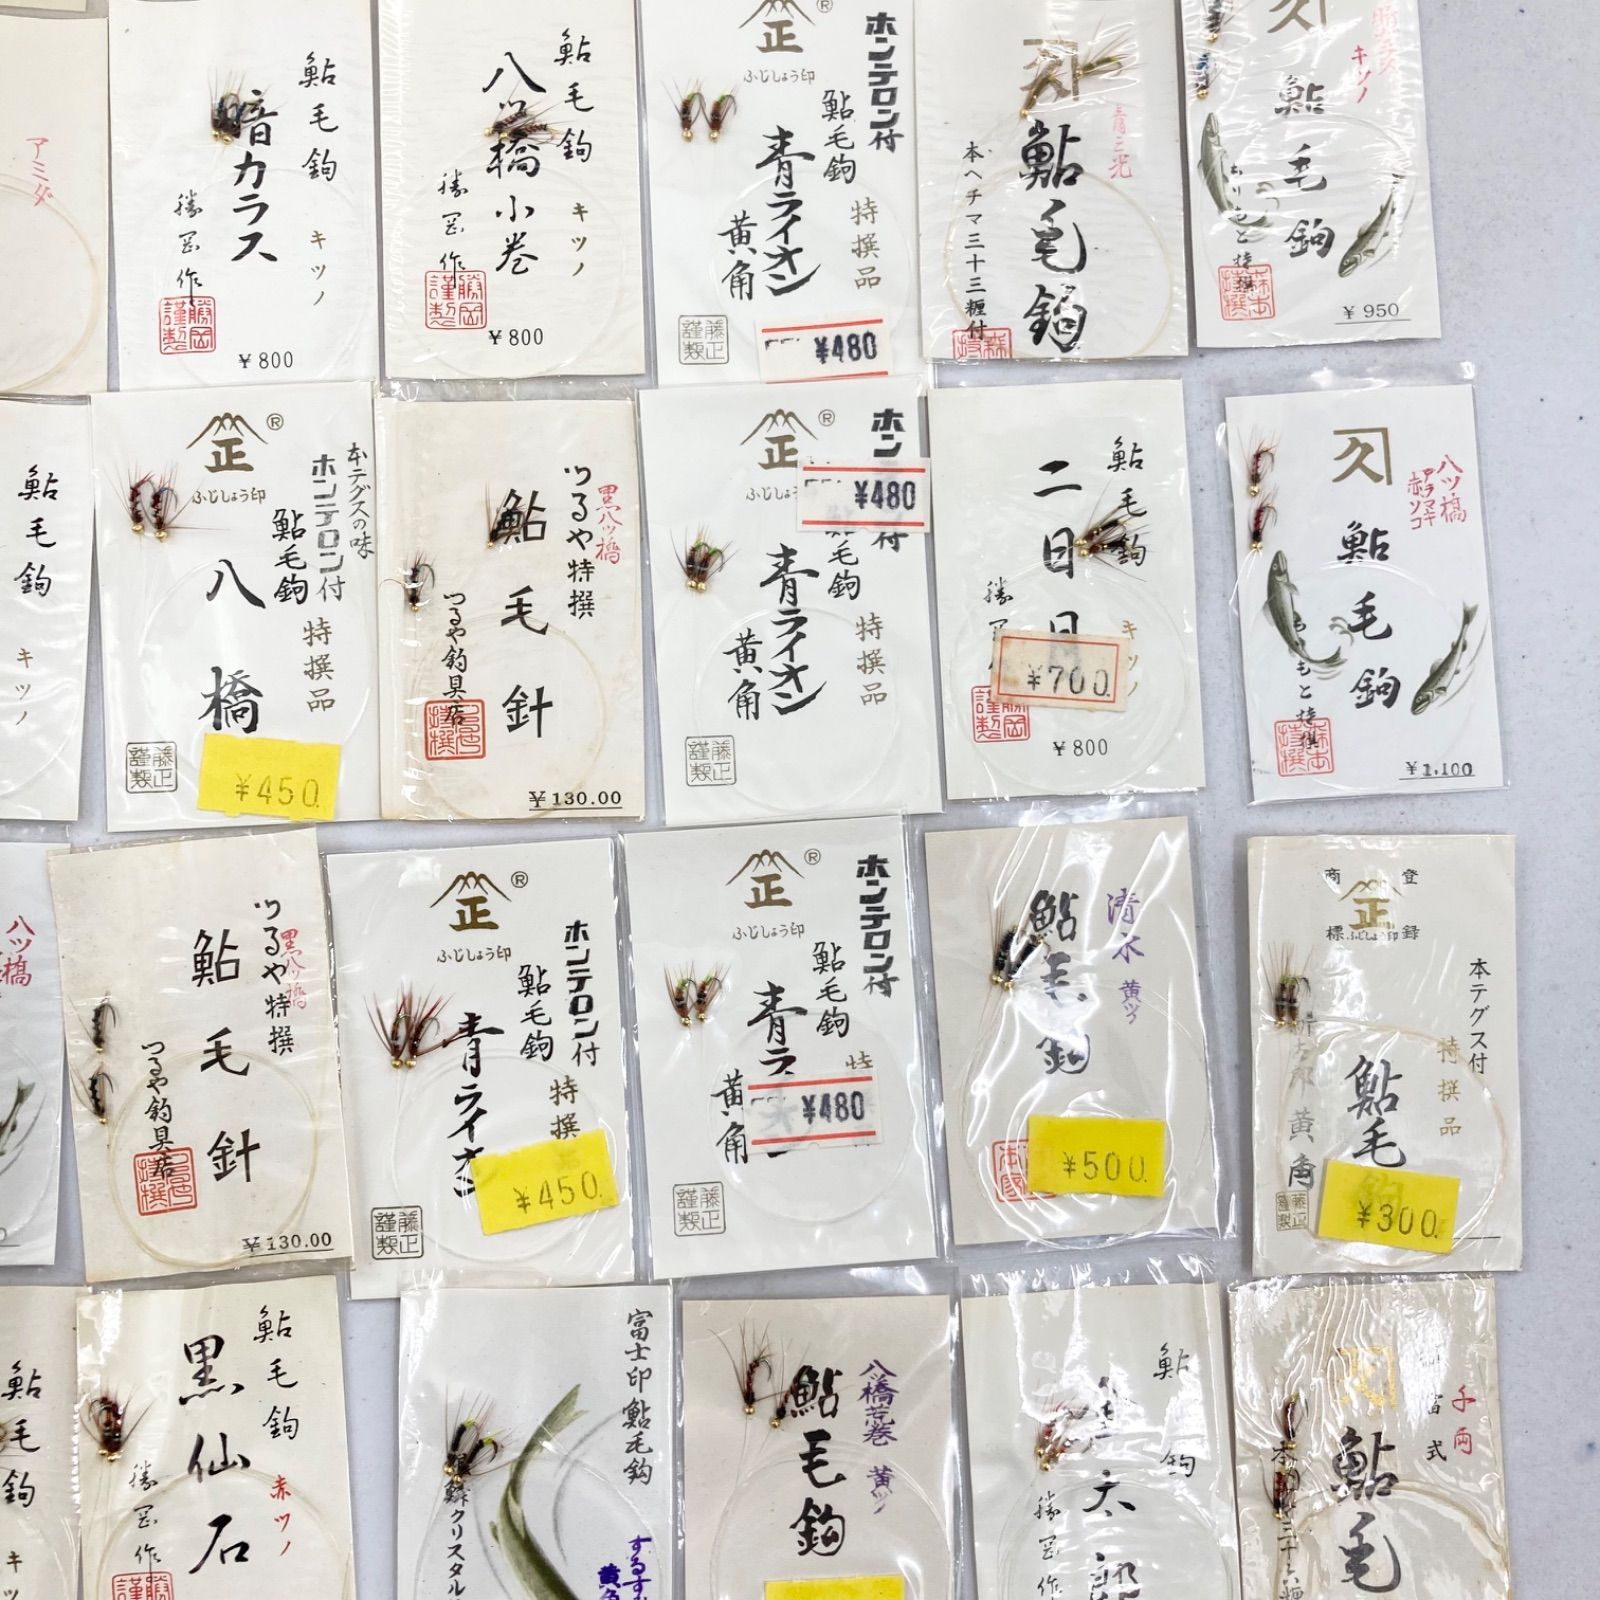 アミダ
鮎毛鈎
暗カラス
キツノ
勝岡作
勝岡謹製
¥800
鮎毛鈎
八ツ橋小巻
キツノ
勝岡作
勝岡謹製
¥800
正
®
ふじしょう印
ホンテロン付
鮎毛鈎
青ライオン
黄角
特撰品
藤正謹製
¥480
青二光
鮎毛鈎
本ヘチマ三十三糎付
久
キツノ
鮎毛鈎
森本特撰
¥950
鮎毛鈎
キツノ
正
®
ふじしょう印
本テグスの味
ホンテロン付
鮎毛鈎
八橋
特撰品
藤正謹製
¥450.
黒八ッ橋
つるや特撰
鮎毛針
つるや釣具店
¥130.00
正
®
ふじしょう印
ホン
付
¥480
毛鈎
青ライオン
黄角
特撰品
藤正謹製
鮎毛鈎
二日月
キツノ
勝岡謹製
¥700.
¥800
久
八ツ橋
アラマキ
赤ソコ
鮎毛鈎
森本特撰
¥1,100
八ツ橋
黒八ッ橋
つるや特撰
鮎毛針
つるや釣具店
¥130.00
正
®
ふじしょう印
ホンテロン付
鮎毛鈎
青ライオ
特撰
藤正謹製
¥450.
正
®
ふじしょう印
ホンテロン付
鮎毛鈎
青ラ
黄角
¥480
藤正謹製
清水
黄ツノ
鮎毛鈎
¥500.
登録商標
正
ふじしょう印
本テグス付
特撰品
鮎毛
黄角
¥300.
鮎毛鈎
キツ
鮎毛鈎
黒仙石
赤ツノ
勝岡作
富士印鮎毛鈎
クリスタル
するす
黄
八ツ橋荒巻
黄ツノ
鮎毛鈎
鮎
鈎
太郎
勝岡作
千両
式
鮎毛